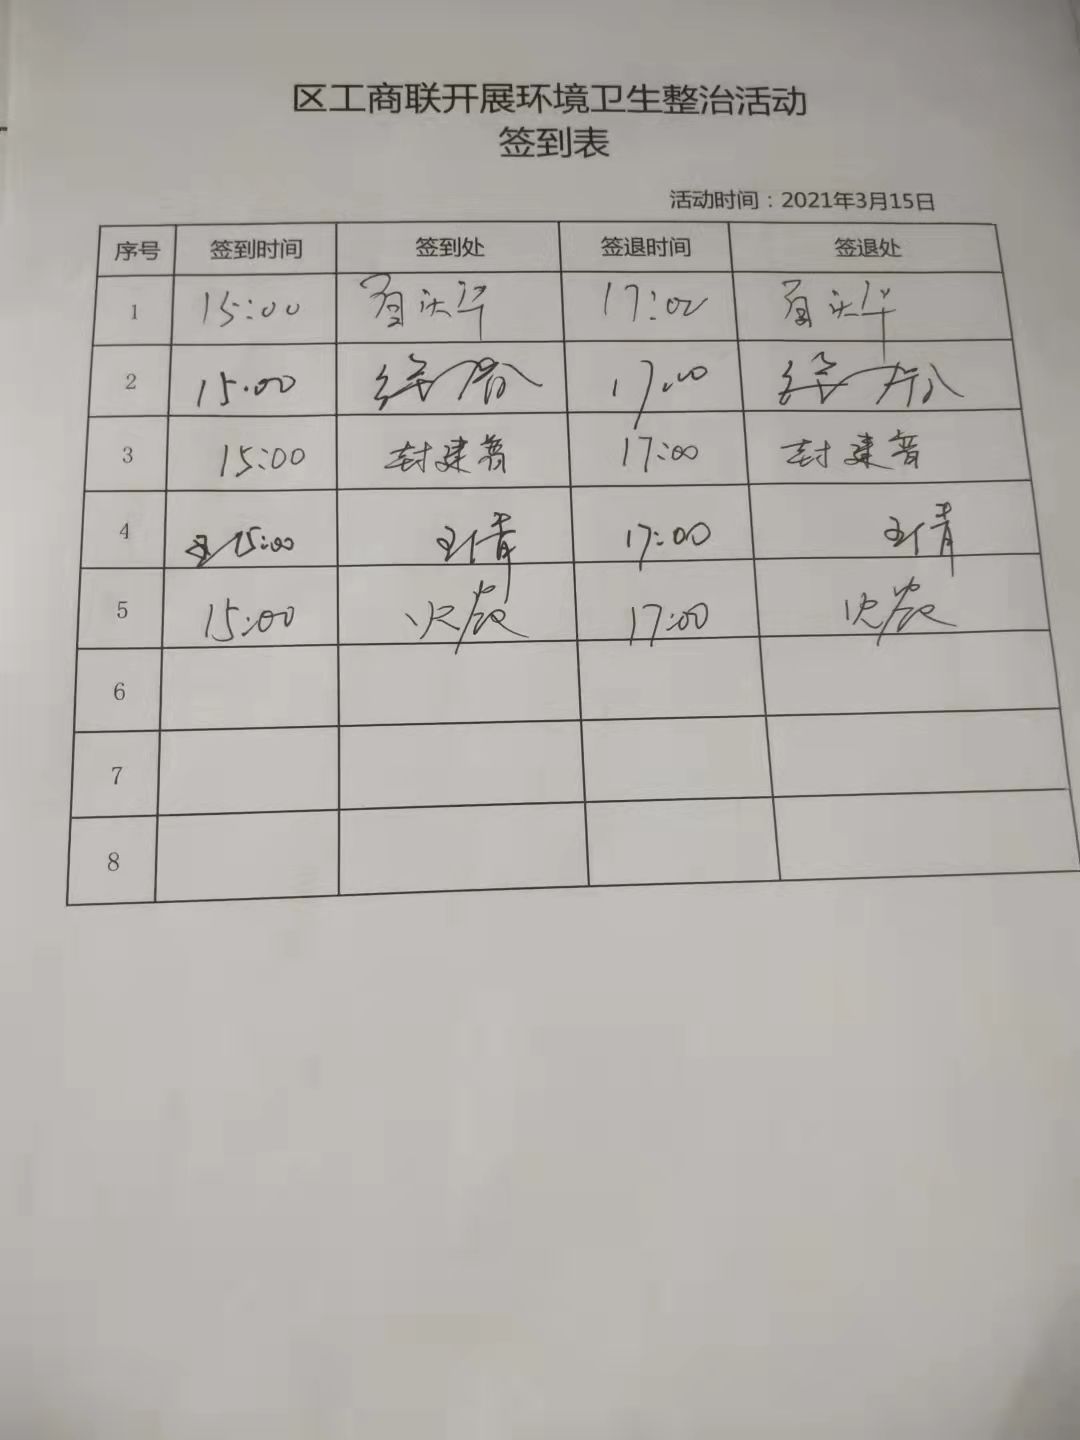 区工商联开展环境卫生整治活动
签到表
活动时间：2021年3月15日
序号 签到时间 签到处 签退时间 签退处
1 15:00 17:00
2 15:00 17:00
3 15:00 封建普 17:00 封建普
4 15:00 王倩 17:00 王倩
5 15:00 17:00
6
7
8